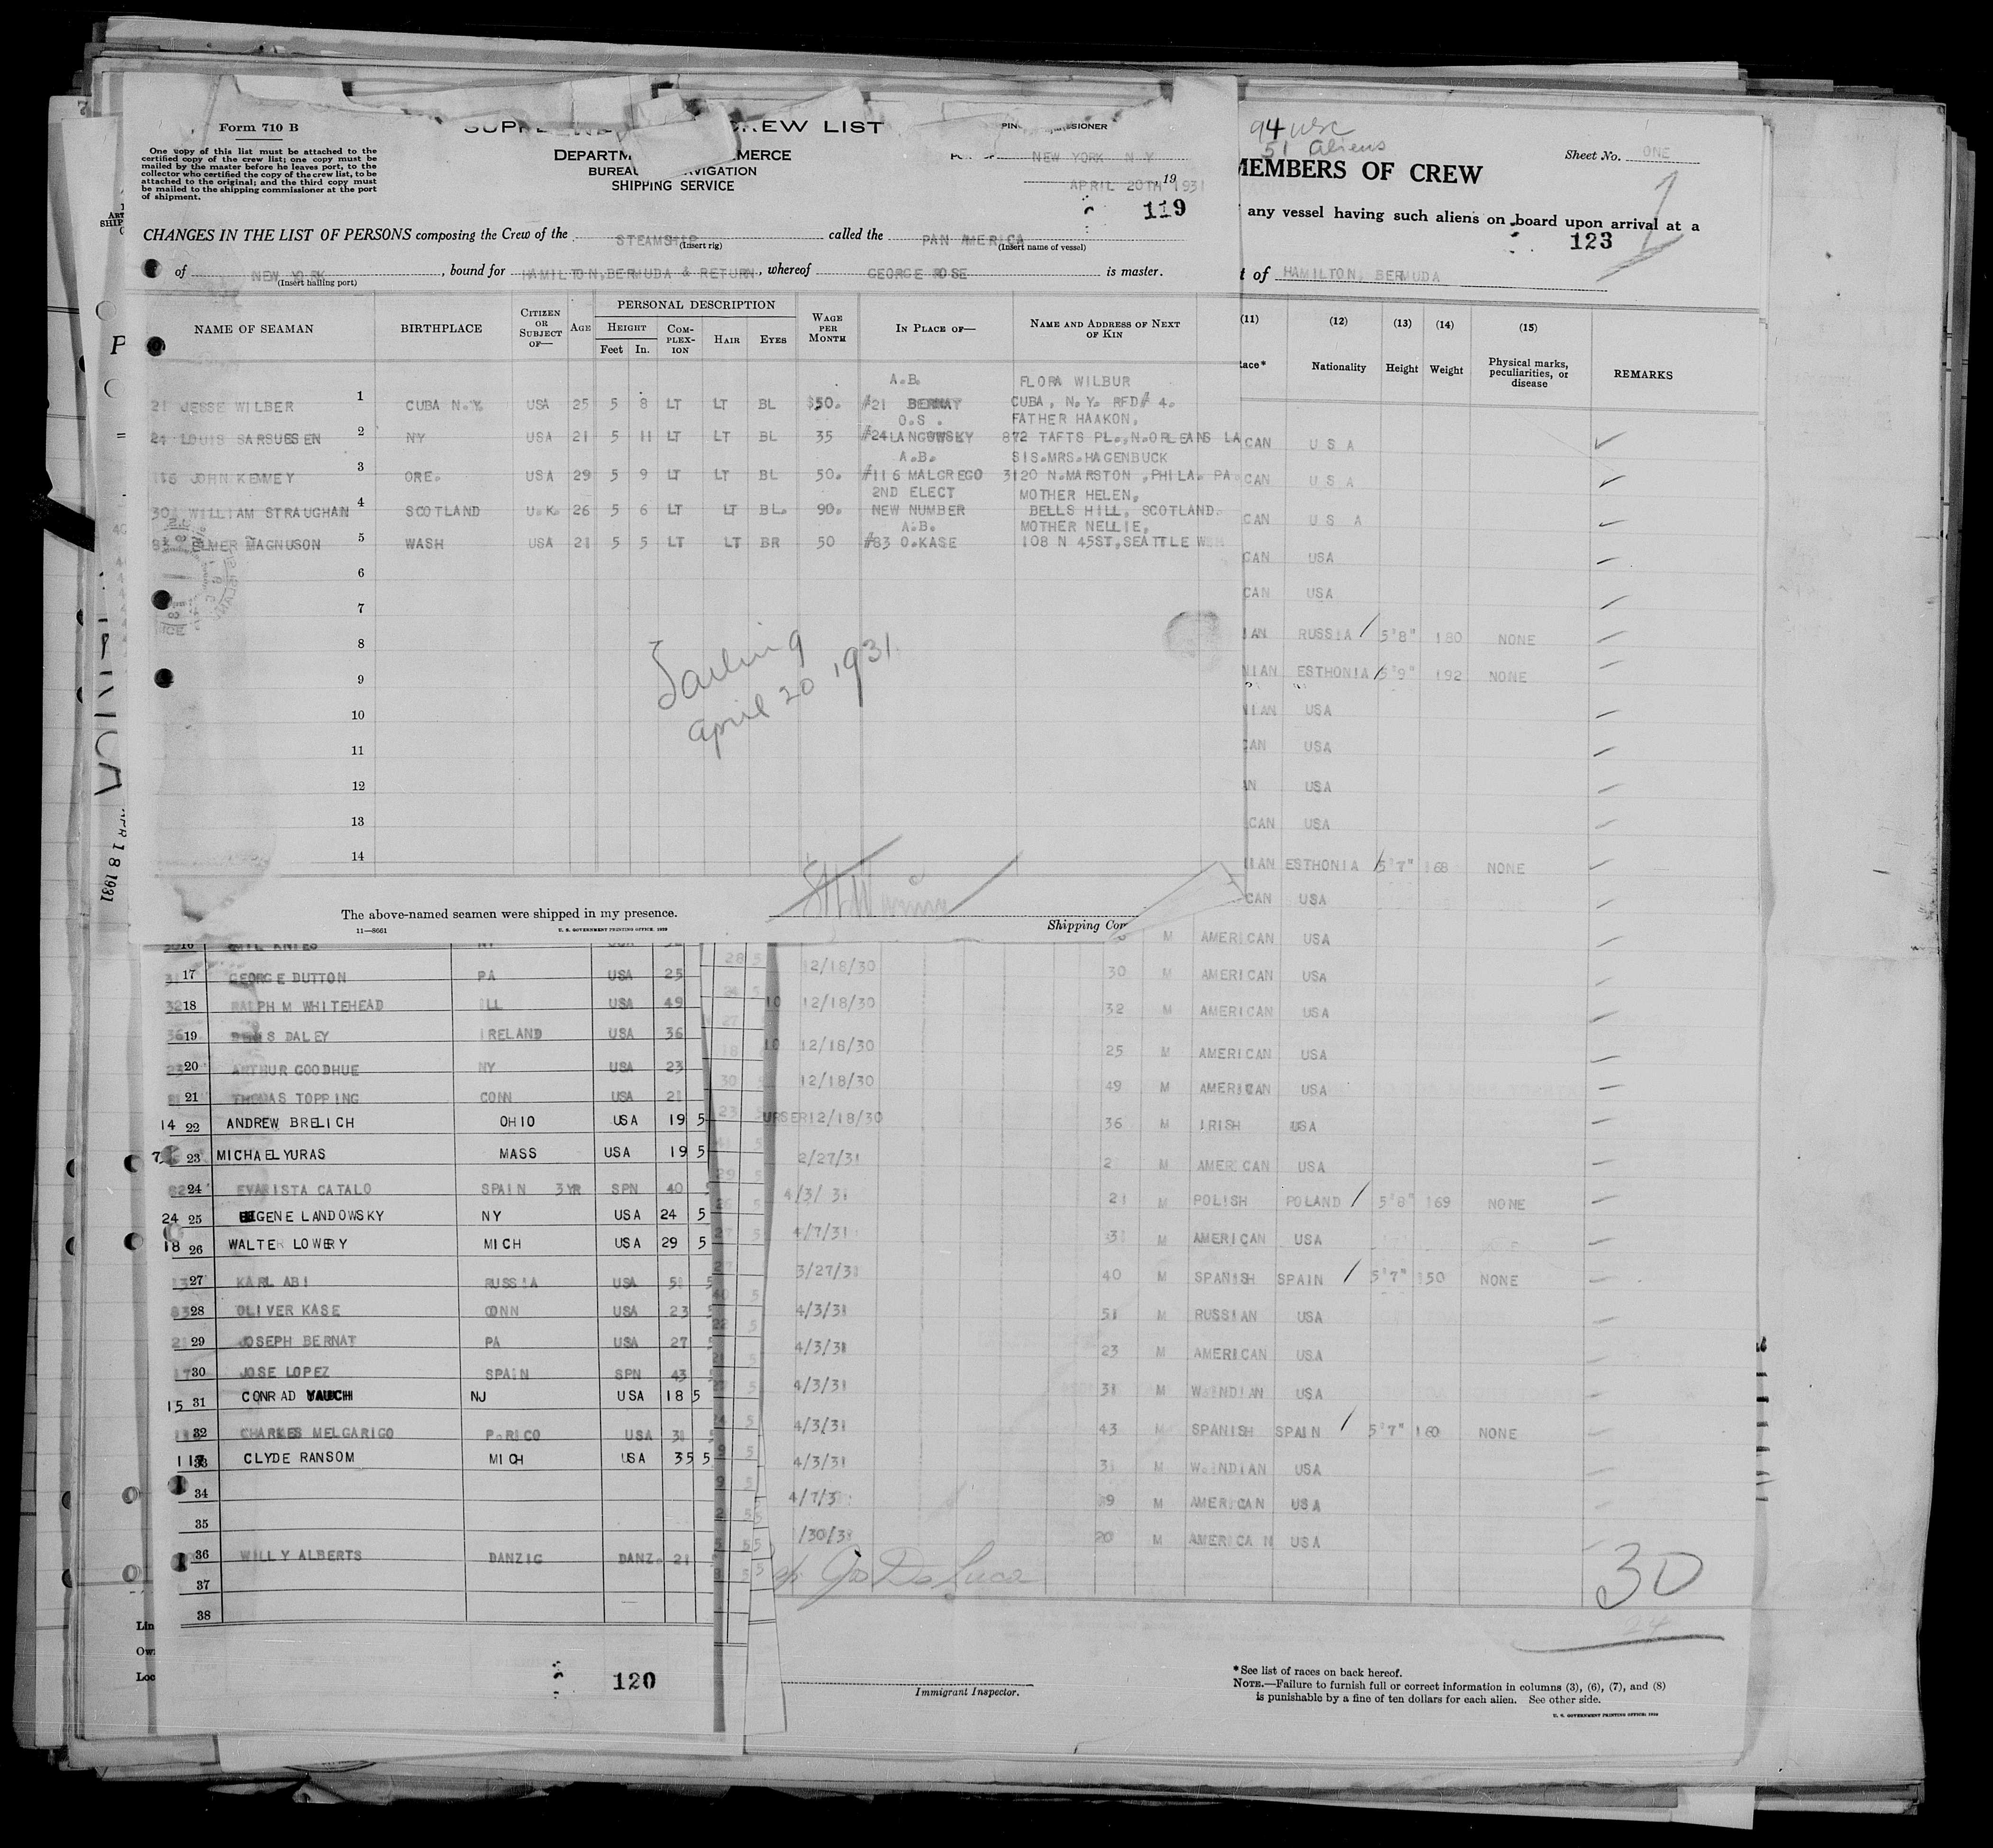 Form 710 B
One copy of this list must be attached to the
certified copy of the crew list; one copy must be
mailed by the master before he leaves port, to the
collector who certified the copy of the crew list, to be
attached to the original; and the third copy must
be mailed to the shipping commissioner at the port
of shipment.
CREW LIST
BUREAU
SHIPPING SERVICE
NEW YORK N Y
APRIL 20TH 1931
119
CHANGES IN THE LIST OF PERSONS composing the Crew of the STEAMSHIP called the PAN AMERICA
(Insert rig) (Insert name of vessel)
of NEW YORK, bound for HAMILTON, BERMUDA & RETURN, whereof GEORGE ROSE is master.
(Insert hailing port)
NAME OF SEAMAN BIRTHPLACE CITIZEN OR SUBJECT OF— AGE PERSONAL DESCRIPTION WAGE PER MONTH IN PLACE OF— NAME AND ADDRESS OF NEXT OF KIN
HEIGHT COM-PLEX-ION HAIR EYES
Feet In.
A.B. FLORA WILBUR
21 JESSE WILBER 1 CUBA N.Y. USA 25 5 8 LT LT BL $50. #21 BERNAT CUBA, N.Y. RFD# 4.
O.S. FATHER HAAKON,
24 LOUIS SARSUESEN 2 NY USA 21 5 11 LT LT BL 35 #24 LANGOWSKY 872 TAFTS PL., N.ORLEANS LA
A.B. SIS.MRS.HAGENBUCK
116 JOHN KEWVEY 3 ORE. USA 29 5 9 LT LT BL 50. #116 MALGREGO 3120 N.MARSTON ,PHILA. PA.
2ND ELECT MOTHER HELEN,
30A WILLIAM STRAUGHAN 4 SCOTLAND U.K. 26 5 6 LT LT BL. 90. NEW NUMBER BELLS HILL, SCOTLAND.
A.B. MOTHER NELLIE,
83 ELMER MAGNUSON 5 WASH USA 21 5 5 LT LT BR 50 #83 O.KASE 108 N 45ST, SEATTLE
6
7
8
9
10
11
12
13
14
Sailing
april 20 1931
The above-named seamen were shipped in my presence.
11—8661 U. S. GOVERNMENT PRINTING OFFICE: 1929
Shipping Com
APR 18 1931
17 GEORGE DUTTON PA USA 25
32 18 RALPH M WHITEHEAD ILL USA 49
36 19 DALEY IRELAND USA 36
20 ARTHUR GOODHUE NY USA 23
21 THOMAS TOPPING CONN USA 21
14 22 ANDREW BRELICH OHIO USA 19 5
7 23 MICHAEL YURAS MASS USA 19 5
82 24 EVARISTA CATALO SPAIN 3YR SPN 40
24 25 EUGENE LANDOWSKY NY USA 24 5
18 26 WALTER LOWERY MICH USA 29 5
27 KARL ABI RUSSIA USA 51
83 28 OLIVER KASE CONN USA 23
21 29 JOSEPH BERNAT PA USA 27
17 30 JOSE LOPEZ SPAIN SPN 43
15 31 CONRAD NJ USA 18 5
32 CHARLES MELGARIGO P.RICO USA 31
117 33 CLYDE RANSOM MICH USA 35 5
34
35
36 WILLY ALBERTS DANZIG DANZ. 21
37
38
120
94
51 aliens
Sheet No. ONE
MEMBERS OF CREW
any vessel having such aliens on board upon arrival at a
123
of HAMILTON, BERMUDA
(11) (12) (13) (14) (15)
Nationality Height Weight Physical marks, peculiarities, or disease REMARKS
CAN U S A
CAN U S A
CAN U S A
CAN USA
CAN USA
IAN RUSSIA 5'8" 180 NONE
NIAN ESTHONIA 5'9" 192 NONE
NIAN USA
CAN USA
AN USA
CAN USA
IAN ESTHONIA 5'7" 168 NONE
CAN USA
M AMERICAN USA
12/18/30 30 M AMERICAN USA
12/18/30 32 M AMERICAN USA
12/18/30 25 M AMERICAN USA
12/18/30 49 M AMERICAN USA
URSER 12/18/30 36 M IRISH USA
2/27/31 2 M AMERICAN USA
4/3/31 21 M POLISH POLAND 5'8" 169 NONE
4/7/31 31 M AMERICAN USA
3/27/31 40 M SPANISH SPAIN 5'7" 150 NONE
4/3/31 51 M RUSSIAN USA
4/3/31 23 M AMERICAN USA
4/3/31 31 M W.INDIAN USA
4/3/31 43 M SPANISH SPAIN 5'7" 160 NONE
4/3/31 31 M W.INDIAN USA
4/7/3 M AMERICAN USA
/30/3 20 M AMERICAN USA
30
Immigrant Inspector.
*See list of races on back hereof.
NOTE.—Failure to furnish full or correct information in columns (3), (6), (7), and (8)
is punishable by a fine of ten dollars for each alien. See other side.
U. S. GOVERNMENT PRINTING OFFICE: 1930